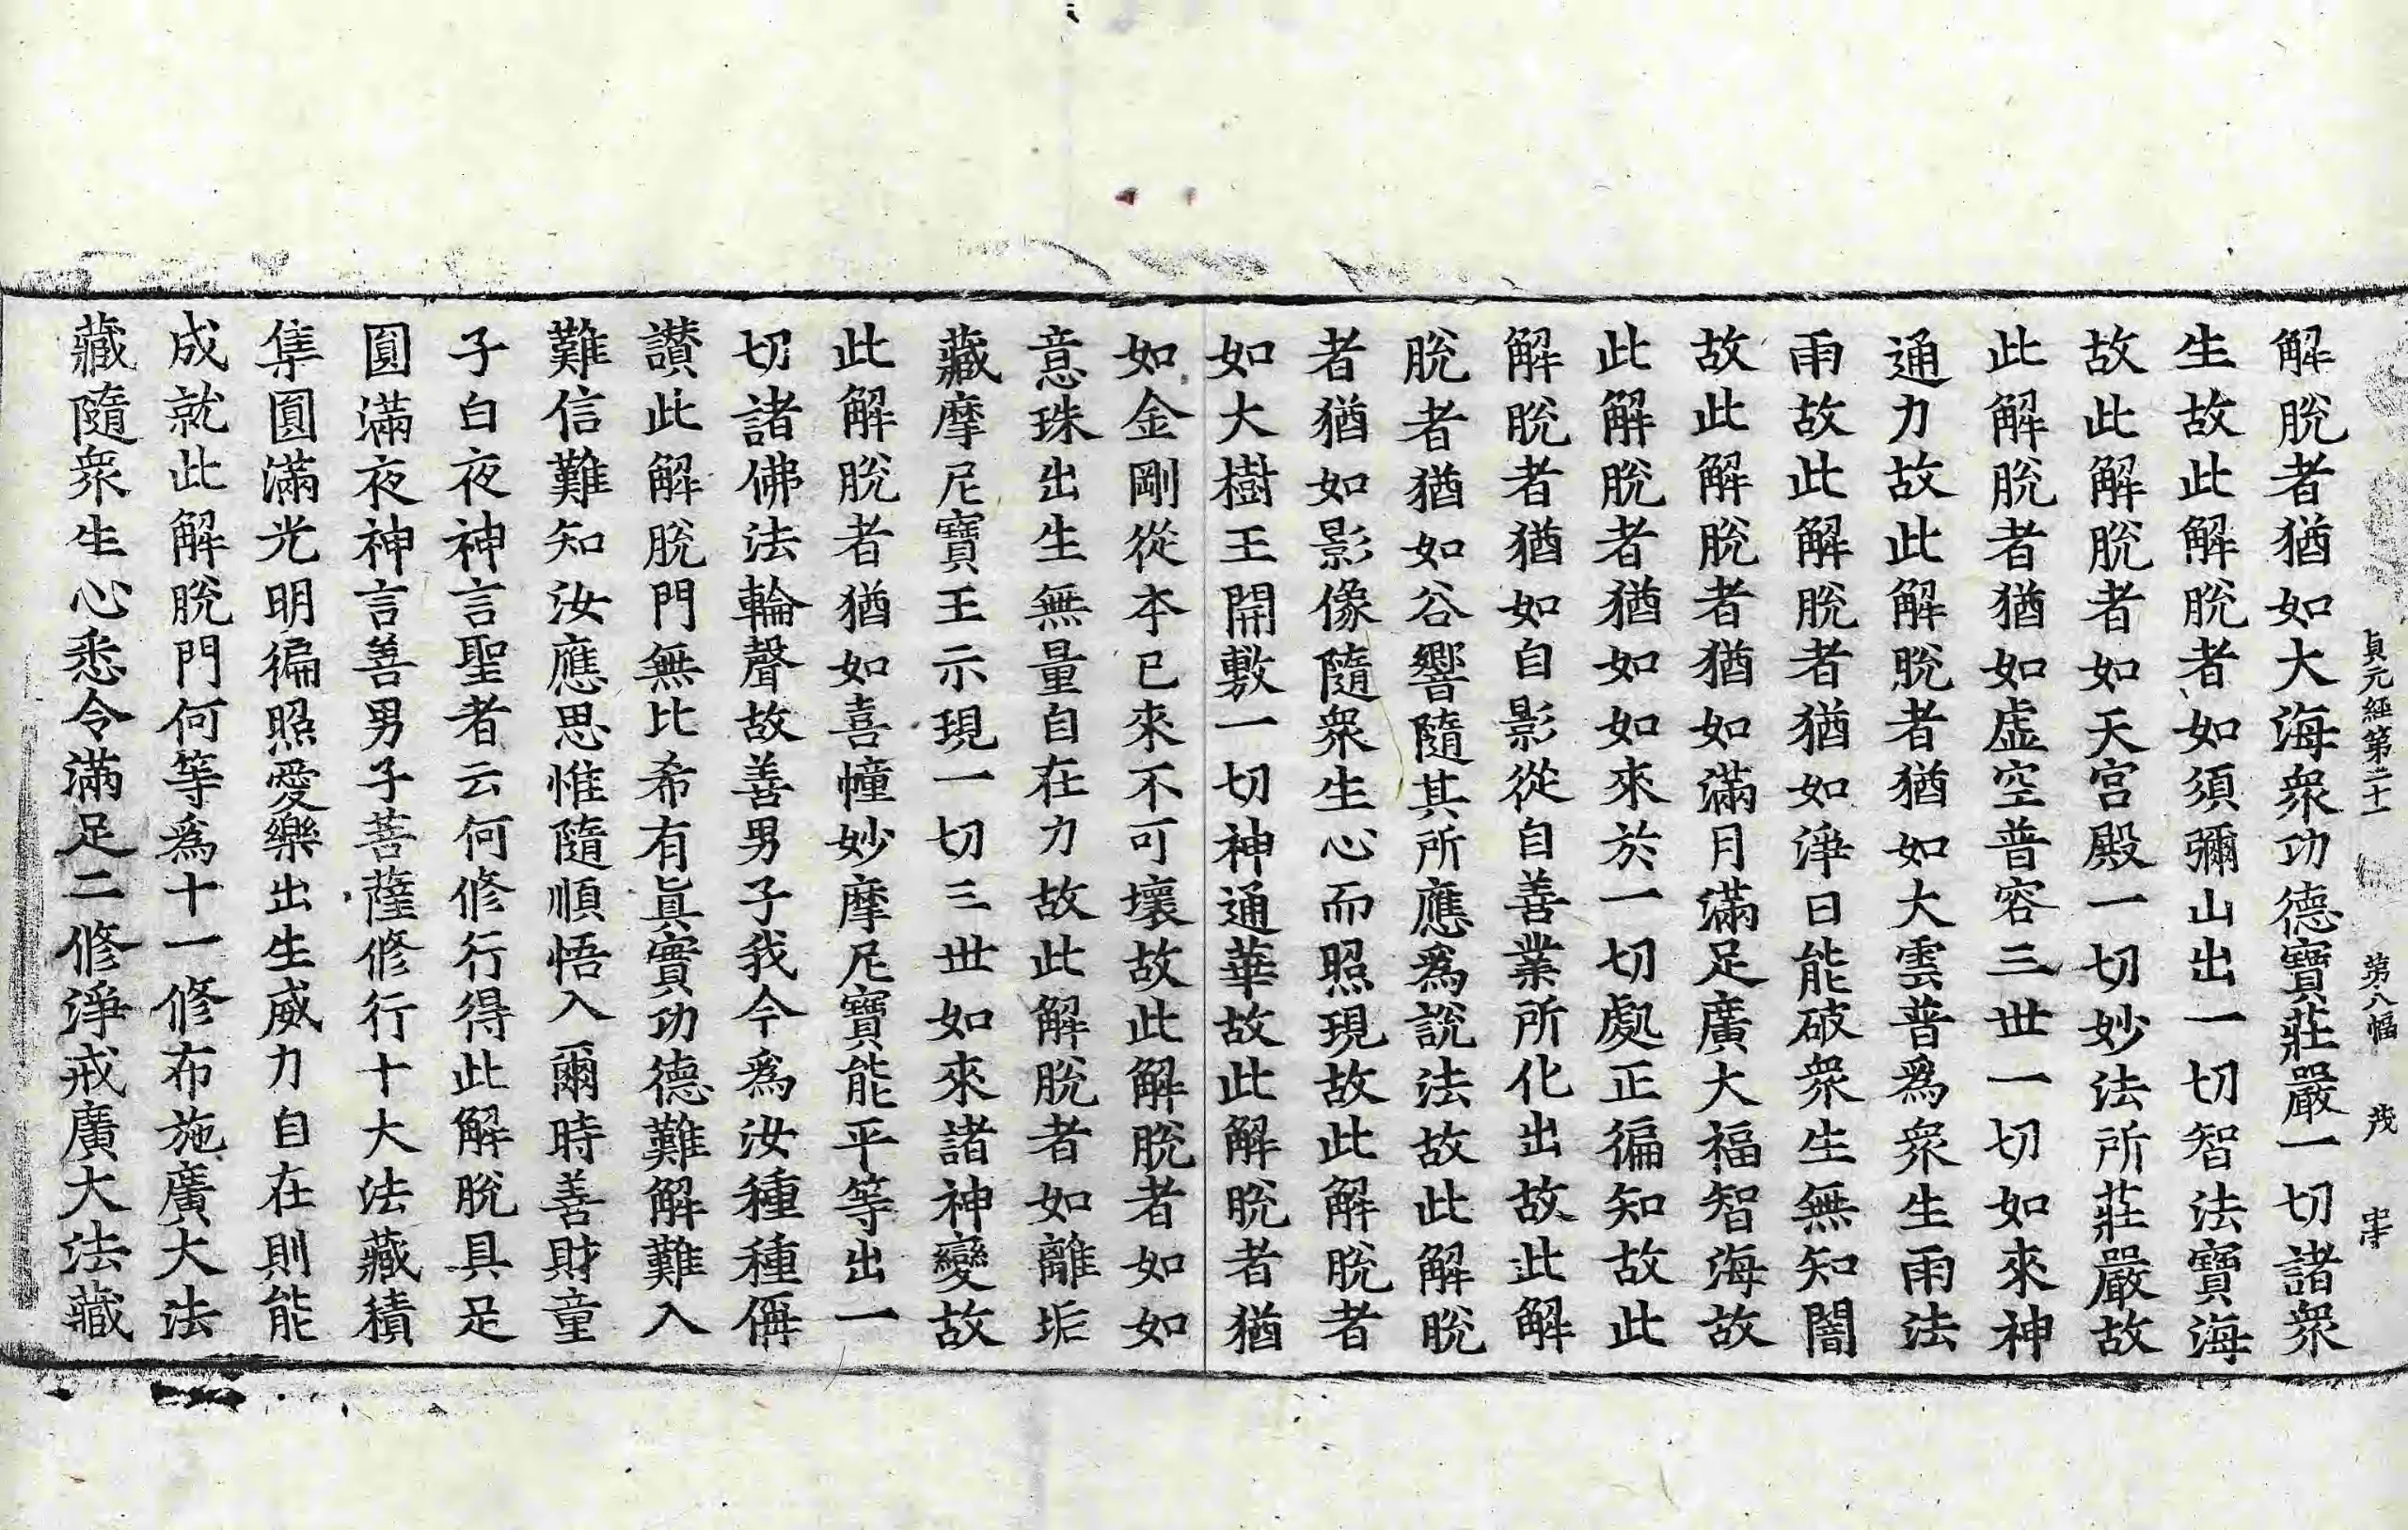 貞元經第二十一　第八幅　茂　字
解脫者猶如大海衆功德寶莊嚴一切諸衆
生故此解脫者如須彌山出一切智法寶海
故此解脫者如天宮殿一切妙法所莊嚴故
此解脫者猶如虛空普容三世一切如來神
通力故此解脫者猶如大雲普爲衆生雨法
雨故此解脫者猶如淨日能破衆生無知闇
故此解脫者猶如滿月滿足廣大福智海故
此解脫者猶如如來於一切處正徧知故此
解脫者猶如自影從自善業所化出故此解
脫者猶如谷響隨其所應爲說法故此解脫
者猶如影像隨衆生心而照現故此解脫者
如大樹王開敷一切神通華故此解脫者猶
如金剛從本已來不可壞故此解脫者如如
意珠出生無量自在力故此解脫者如離垢
藏摩尼寶王示現一切三世如來諸神變故
此解脫者猶如喜幢妙摩尼寶能平等出一
切諸佛法輪聲故善男子我今爲汝種種偁
讃此解脫門無比希有眞實功德難解難入
難信難知汝應思惟隨順悟入爾時善財童
子白夜神言聖者云何修行得此解脫具足
圓滿夜神言善男子菩薩修行十大法藏積
集圓滿光明徧照愛樂出生威力自在則能
成就此解脫門何等爲十一修布施廣大法
藏隨衆生心悉令滿足二修淨戒廣大法藏